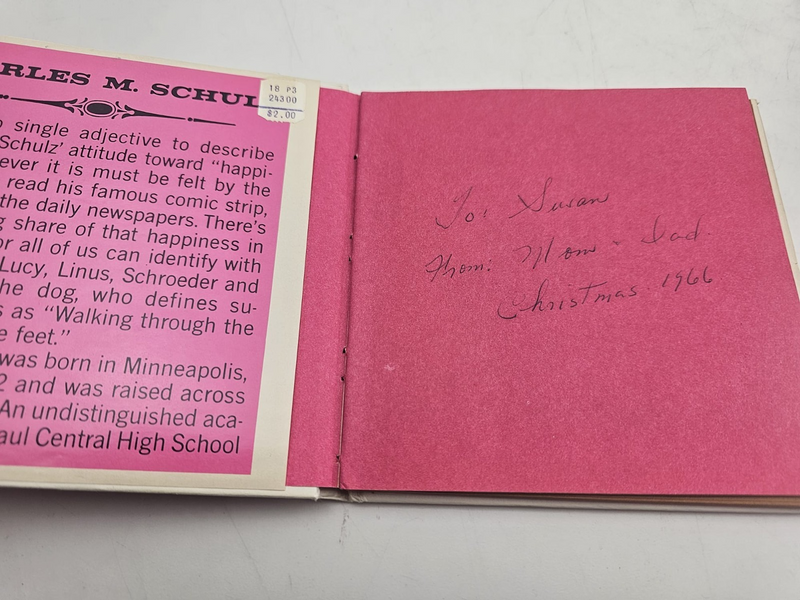 RLES M. SCHUL
18 P3
24300
$2.00
single adjective to describe
Schulz' attitude toward "happi-
ever it is must be felt by the
read his famous comic strip,
the daily newspapers. There's
g share of that happiness in
or all of us can identify with
Lucy, Linus, Schroeder and
he dog, who defines su-
s as "Walking through the
e feet."
was born in Minneapolis,
2 and was raised across
An undistinguished aca-
aul Central High School
To: Susan
From: Mom & Dad
Christmas. 1966